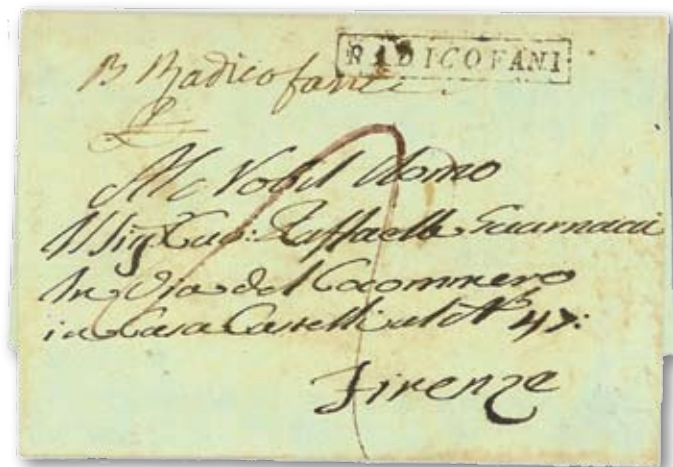 RADICOFANI
Radicofani
Al Nobil Uomo
Il Sig Cav: Raffaello Guarnacci
In Via del Cocomero
in Casa Castelli al N° 47:
Firenze